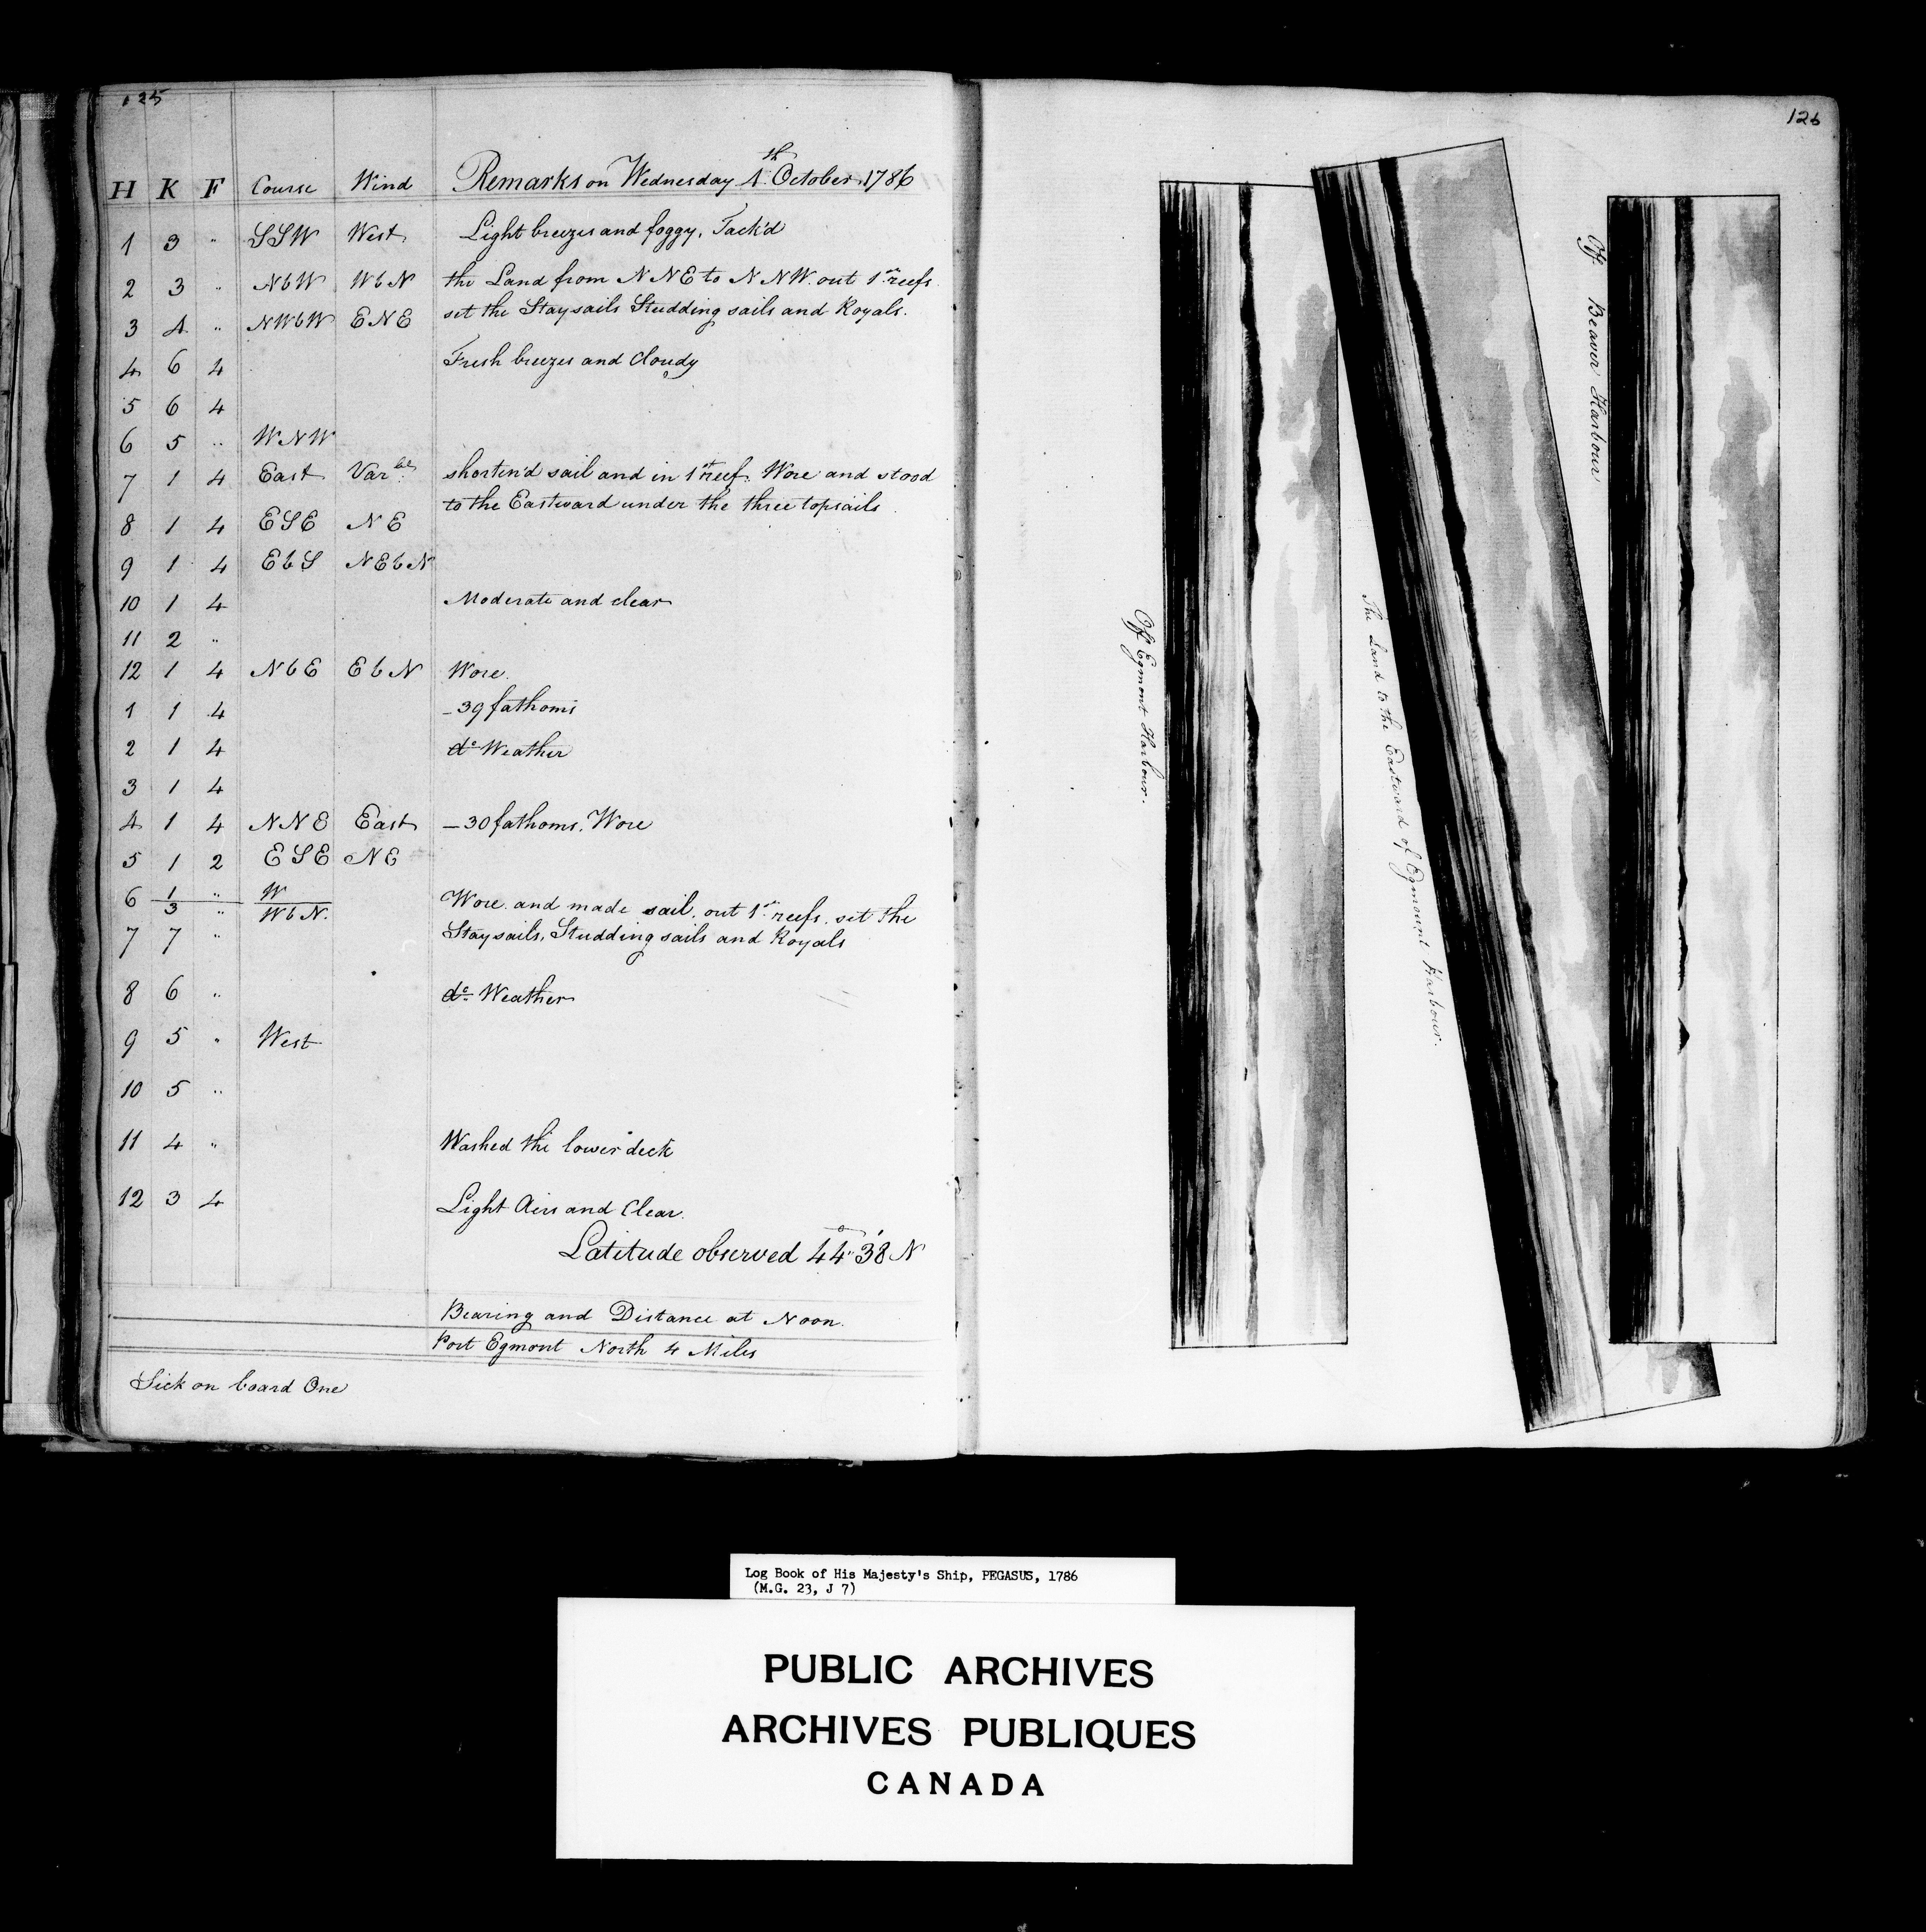 125
H K F Course Wind Remarks on Wednesday 4th October 1786
1 3 " SSW West Light breezes and foggy, Tack'd
2 3 " NbW WbN the Land from NNE to NNW. out 1st reefs
3 4 " NWbW ENE set the Staysails Studding sails and Royals.
4 6 4 Fresh breezes and Cloudy
5 6 4
6 5 " WNW
7 1 4 East Varble shorten'd sail and in 1st reef. Wore and stood
to the Eastward under the three topsails
8 1 4 ESE NE
9 1 4 EbS NEbN
10 1 4 Moderate and clear
11 2 "
12 1 4 NbE EbN Wore.
1 1 4 - 39 fathoms
2 1 4 do Weather
3 1 4
4 1 4 NNE East - 30 fathoms. Wore
5 1 2 ESE NE
6 1 " W
3 " WbN. Wore and made sail, out 1st reefs. set the
7 7 " Staysails, Studding sails and Royals
8 6 " do Weather
9 5 " West
10 5 "
11 4 " Washed the lower deck
12 3 4 Light Airs and Clear.
Latitude observed 44° 38' N
Bearing and Distance at Noon.
Port Egmont North 4 Miles
Sick on board One
126
Off Egmont Harbour.
The Land to the Eastward of Egmount Harbour.
Off Beaver Harbour
Log Book of His Majesty's Ship, PEGASUS, 1786
(M.G. 23, J 7)
PUBLIC ARCHIVES
ARCHIVES PUBLIQUES
CANADA